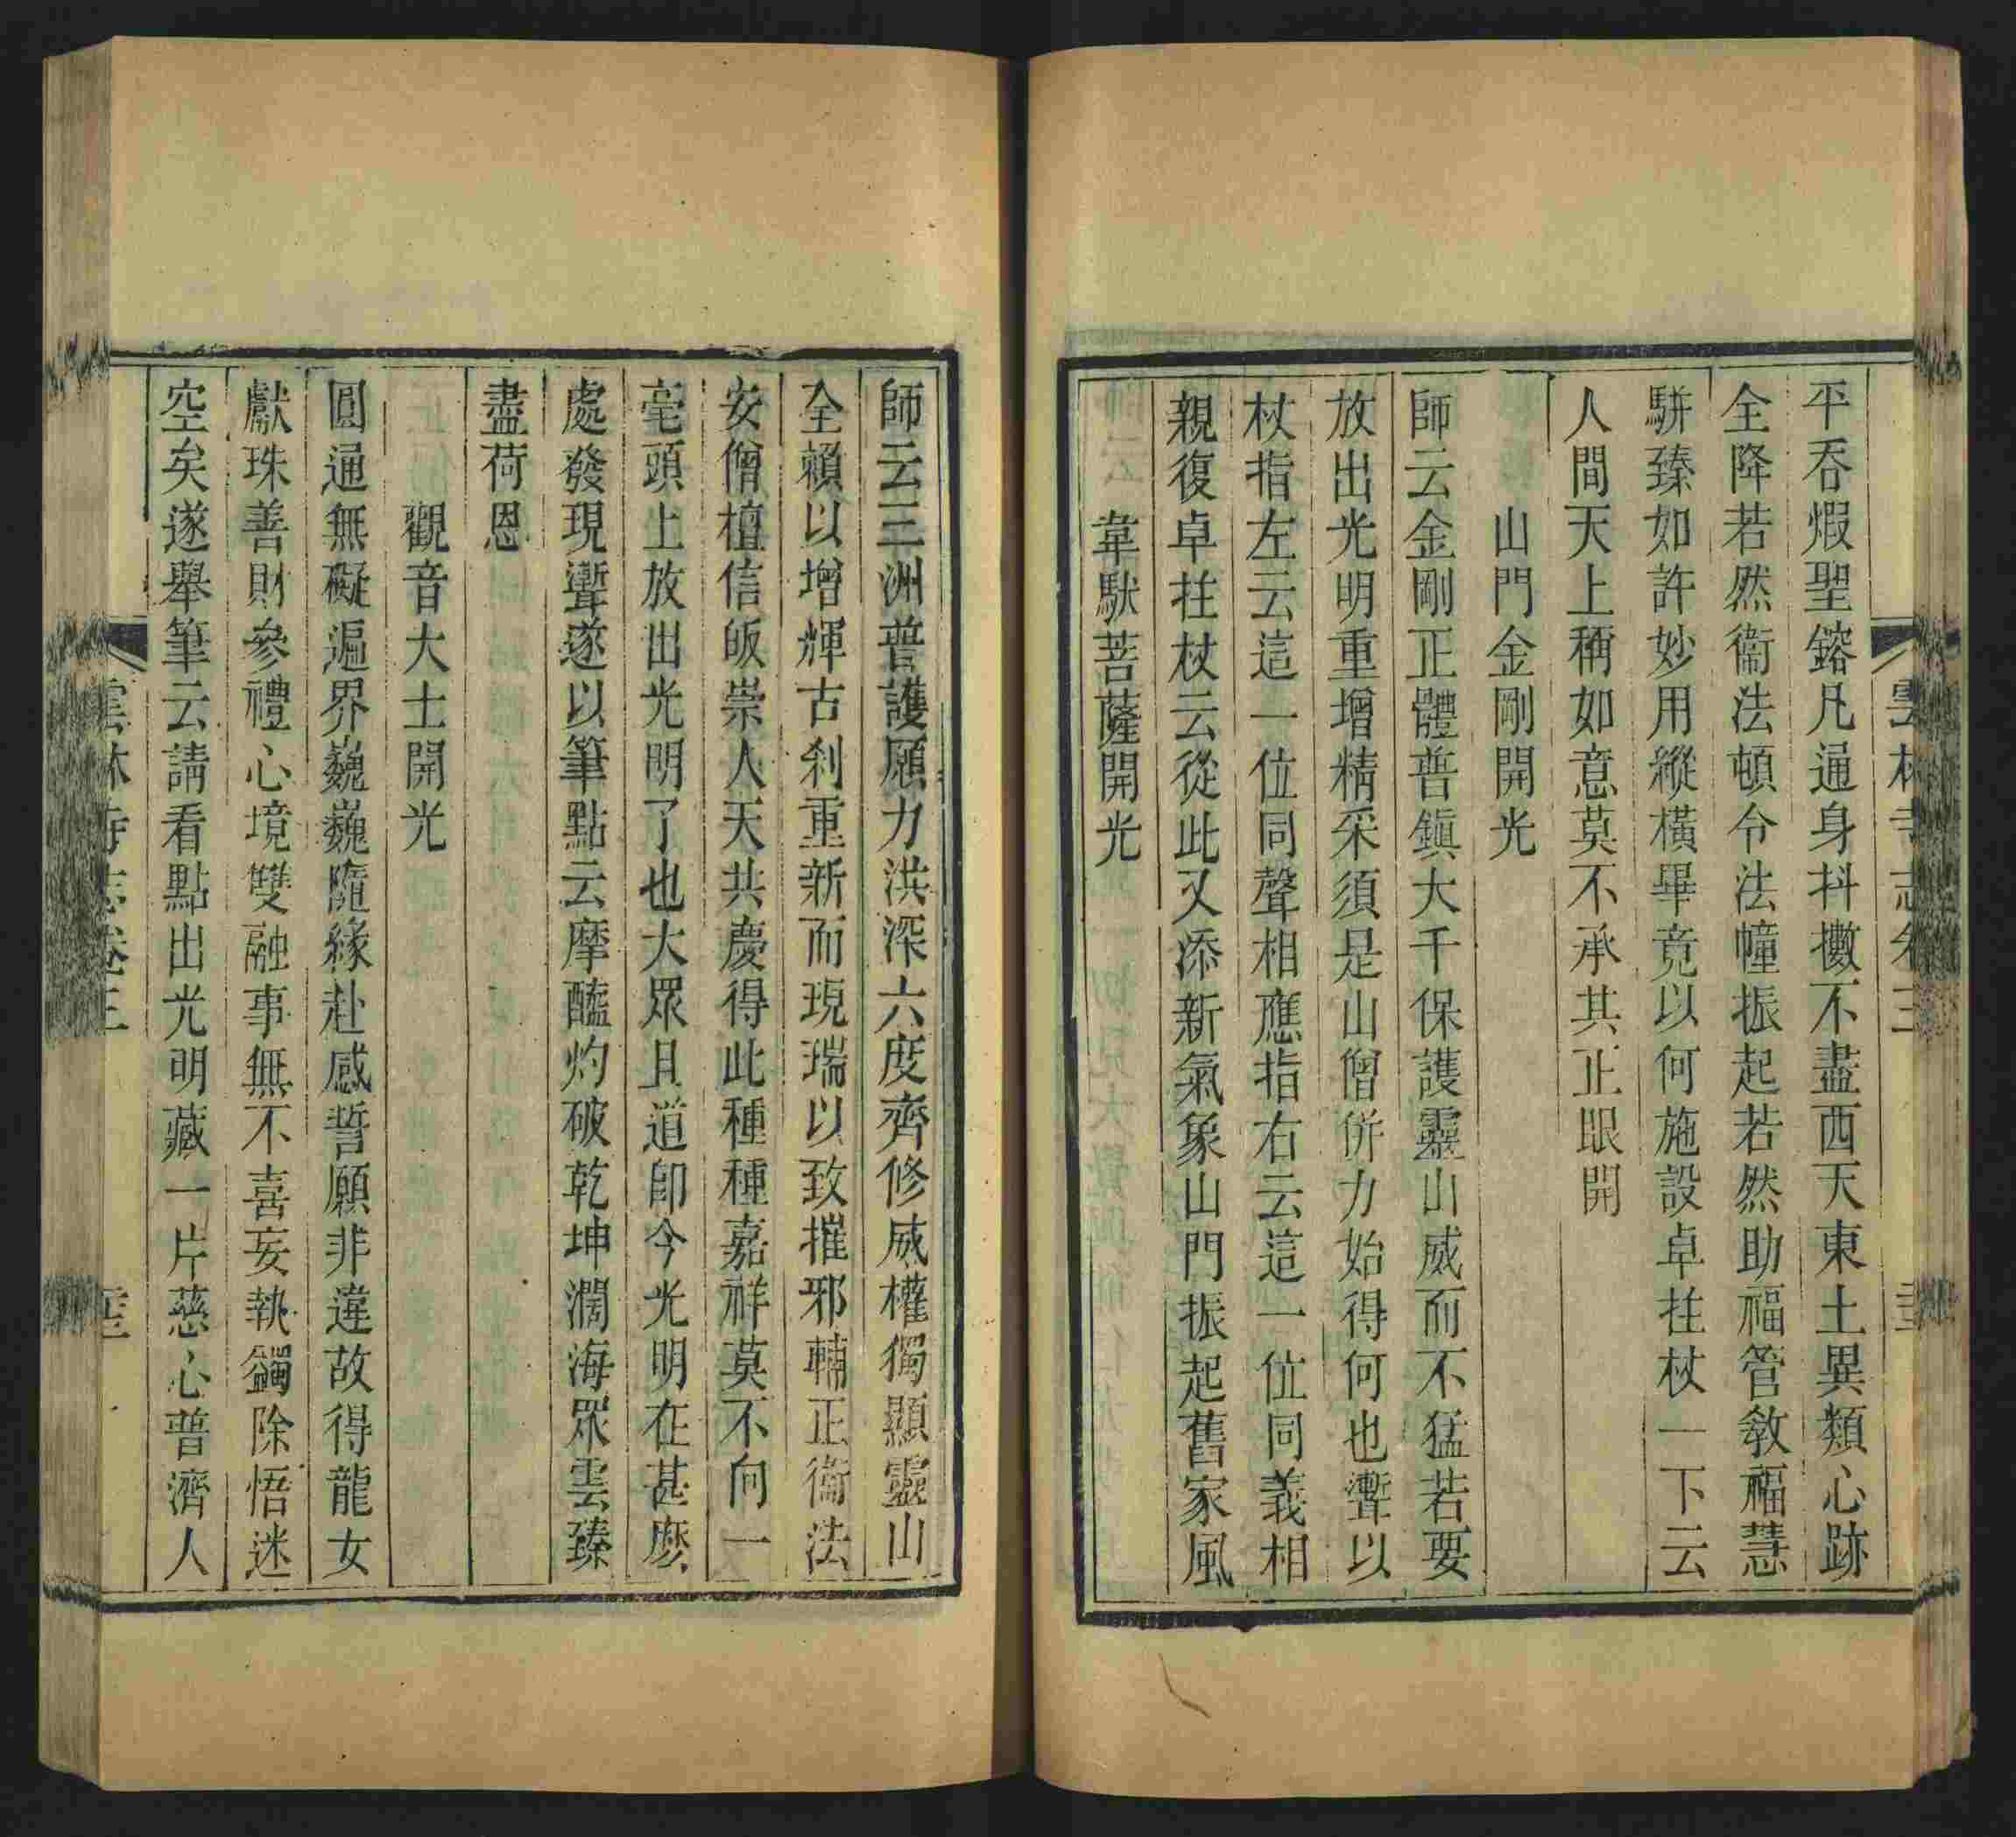 平吞煆聖鎔凡通身抖擻不盡西天東土異類心跡
全降若然衞法頓令法幢振起若然助福管敎福慧
駢臻如許妙用縱橫畢竟以何施設卓拄杖一下云
人間天上稱如意莫不承其正眼開
山門金剛開光
師云金剛正體普鎭大千保護靈山威而不猛若要
放出光明重增精采須是山僧併力始得何也遷以
杖指左云這一位同聲相應指右云這一位同義相
親復卓拄杖云從此又添新氣象山門振起舊家風
韋馱菩薩開光
師云三洲普護願力洪深六度齊修威權獨顯靈山
全賴以增輝古刹重新而現瑞以致摧邪輔正衞法
安僧檀信皈崇人天共慶得此種種嘉祥莫不向一
毫頭上放出光明了也大眾且道卽今光明在甚麽
處發現遂以筆點云摩醯灼破乾坤濶海眾雲臻
盡荷恩
觀音大士開光
圓通無礙遍界巍巍隨緣赴感誓願非違故得龍女
獻珠善財參禮心境雙融事無不喜妄執蠲除悟迷
空矣遂舉筆云請看點出光明藏一片慈心普濟人
雲林寺志卷三